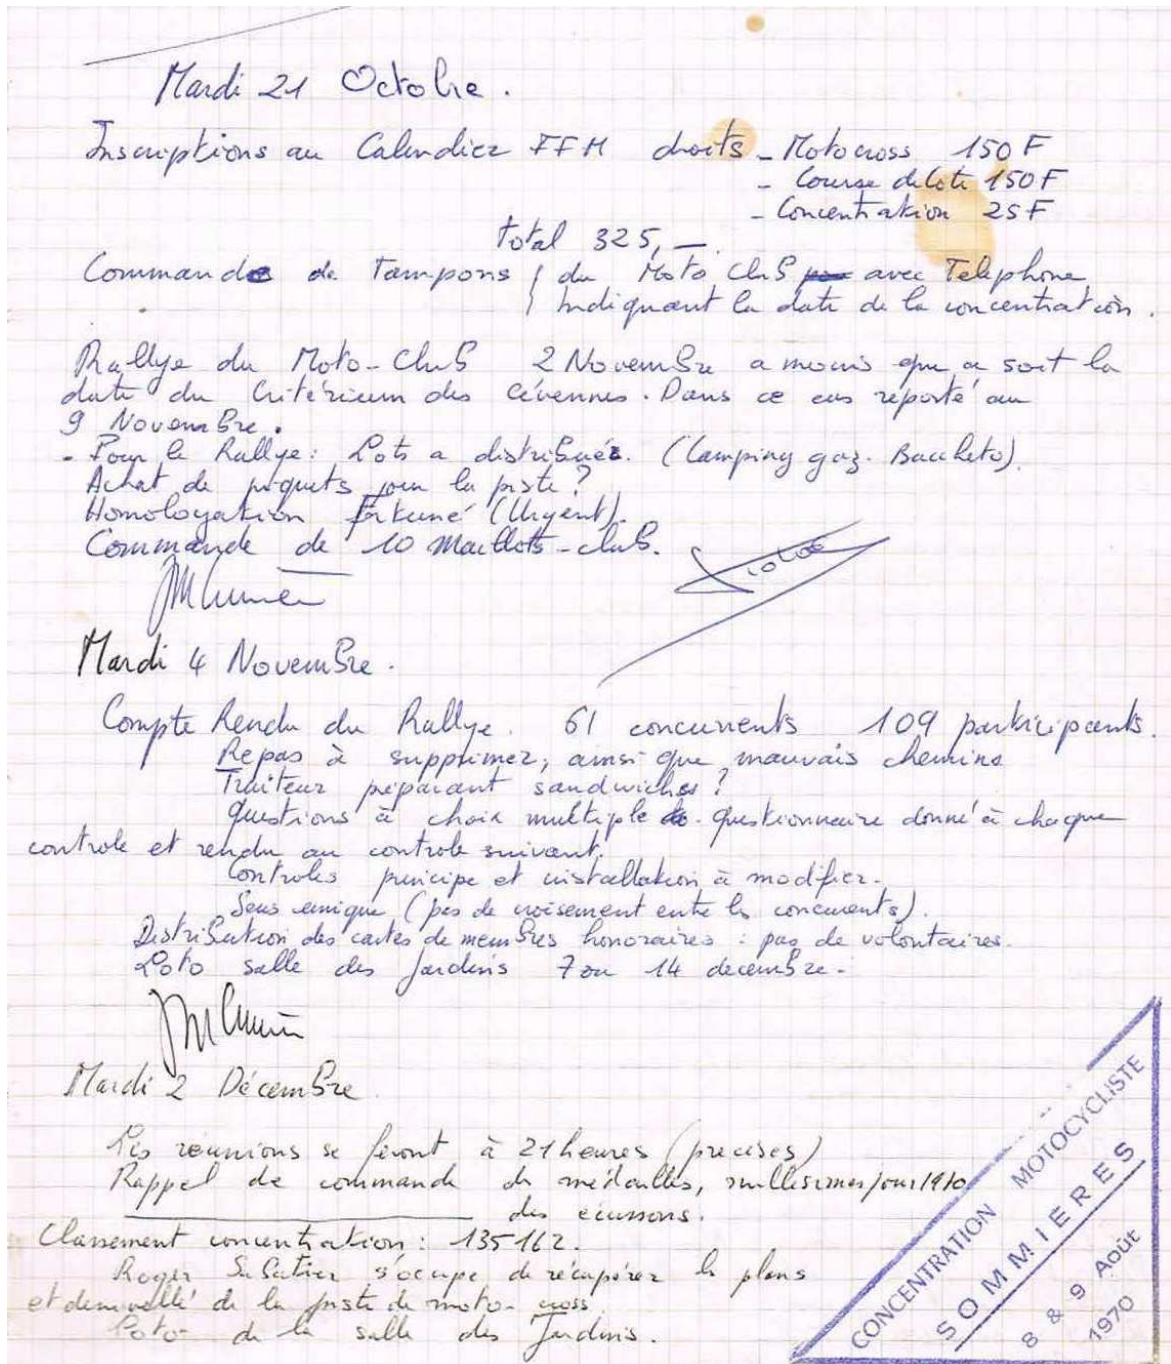 Mardi 21 Octobre.
Inscriptions au Calendier FFM droits - Motocross 150F
- Course de Cote 150F
- Concentration 25F
total 325,—
Commande de Tampons { du Moto Club avec Telephone
indiquant la date de la concentration.
Rallye du Moto-Club 2 Novembre a moins que ce soit la
date du Critérium des Cévennes. Dans ce cas réporté au
9 Novembre.
- Pour le Rallye: Lots a distribuér. (Camping gaz. Baccheto).
Achat de piquets pour la piste?
Homologation Fortuné (Urgent).
Commande de 10 Maillots-club.
Mardi 4 Novembre.
Compte Rendu du Rallye. 61 concurrents 109 participants.
Repas à supprimer, ainsi que mauvais chemins
Traiteur préparant sandwiches?
Questions à choix multiple. Questionnaire donné à chaque
controle et rendu au controle suivant.
Controles principe et installation à modifier.
Sens unique (pas de croisement entre les concurrents).
Distribution des cartes de membres honoraires : pas de volontaires.
Loto salle des Jardins 7 ou 14 decembre.
Mardi 2 Décembre
Les réunions se feront à 21 heures (precises)
Rappel de commande de médailles, millesimes pour 1970
des écussons.
Classement concentration : 135162.
Roger s'occupe de récupérer le plans
et denivellé de la piste de moto-cross.
Loto de la salle des Jardins.
CONCENTRATION MOTOCYCLISTE
SOMMIERES
8 & 9 Août
1970